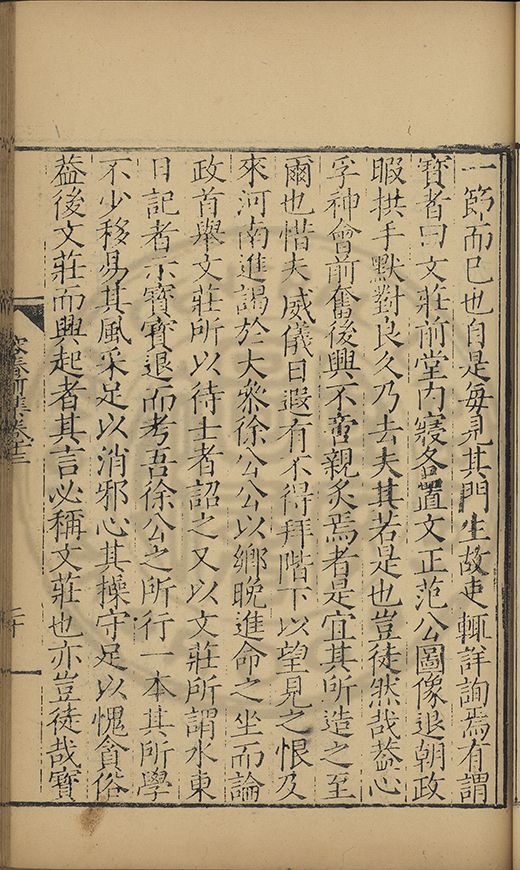 一節而已也自是每見其門生故吏輒詳詢焉有謂
寶者曰文莊前堂內寢各置文正范公圖像退朝政
暇拱手默對良久乃去夫其若是也豈徒然哉葢心
孚神會前奮後興不啻親炙焉者是宜其所造之至
爾也惜夫威儀日遐有不得拜階下以望見之恨及
來河南進謁於大叅徐公公以鄉晚進命之坐而論
政首舉文莊所以待士者詔之又以文莊所謂水東
日記者示寶寶退而考吾徐公之所行一本其所學
不少移易其風采足以消邪心其操守足以愧貪俗
葢後文莊而興起者其言必稱文莊也亦豈徒哉寶
容春前集卷十二
二十